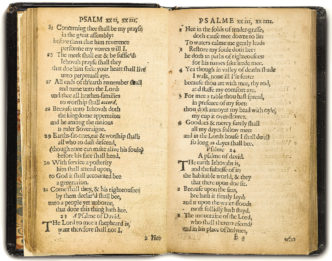 PSALM xxii, xxiii.
25 Concerning thee shall be my prayse
in the great assembly:
before them that him reverence
performe my vowes will I.
26 The meek shall eat & be suffic'd
Iehovah prayse shall they
that doe him seek: your heart shall live
unto perpetuall aye.
27 All ends of th'earth remember shall
and turne unto the Lord:
and thee all heathen-families
to worship shall accord.
28 Because unto Iehovah doth
the kingdome appertaine:
and he among the nations
is ruler Soveraigne.
29 Earths-fat-ones, eat & worship shall
all who to dust descend,
(though none can make alive his soule)
before his face shall bend.
30 With service a posterity
him shall attend upon;
to God it shall accounted bee
a generation.
31 Come shall they, & his righteousnes
by them declar'd shall bee,
unto a people yet unborne,
that done this thing hath hee.
23 A Psalme of David.
The Lord to mee a shepheard is,
want therefore shall not I.
2 Hee
PSALME xxiii, xxiiii.
2 Hee in the folds of tender-grasse,
doth cause mee downe to lie:
To waters calme me gently leads
3 Restore my soule doth hee:
he doth in paths of righteousnes
for his names sake leade mee.
4 Yea though in valley of deaths shade
I walk, none ill I'le feare:
because thou art with mee, thy rod,
and staffe my comfort are.
5 For mee a table thou hast spread,
in presence of my foes:
thou dost annoynt my head with oyle,
my cup it over-flowes.
6 Goodnes & mercy surely shall
all my dayes follow mee:
and in the Lords house I shall dwell
so long as dayes shall bee.
Psalme 24
A psalme of david.
The earth Iehovah's is,
and the fulnesse of it:
the habitable world, & they
that there upon doe sit.
2 Because upon the seas,
hee hath it firmly layd:
and it upon the water-floods
most sollidly hath stayd.
3 The mountaine of the Lord,
who shall thereto ascend?
and in his place of holynes,